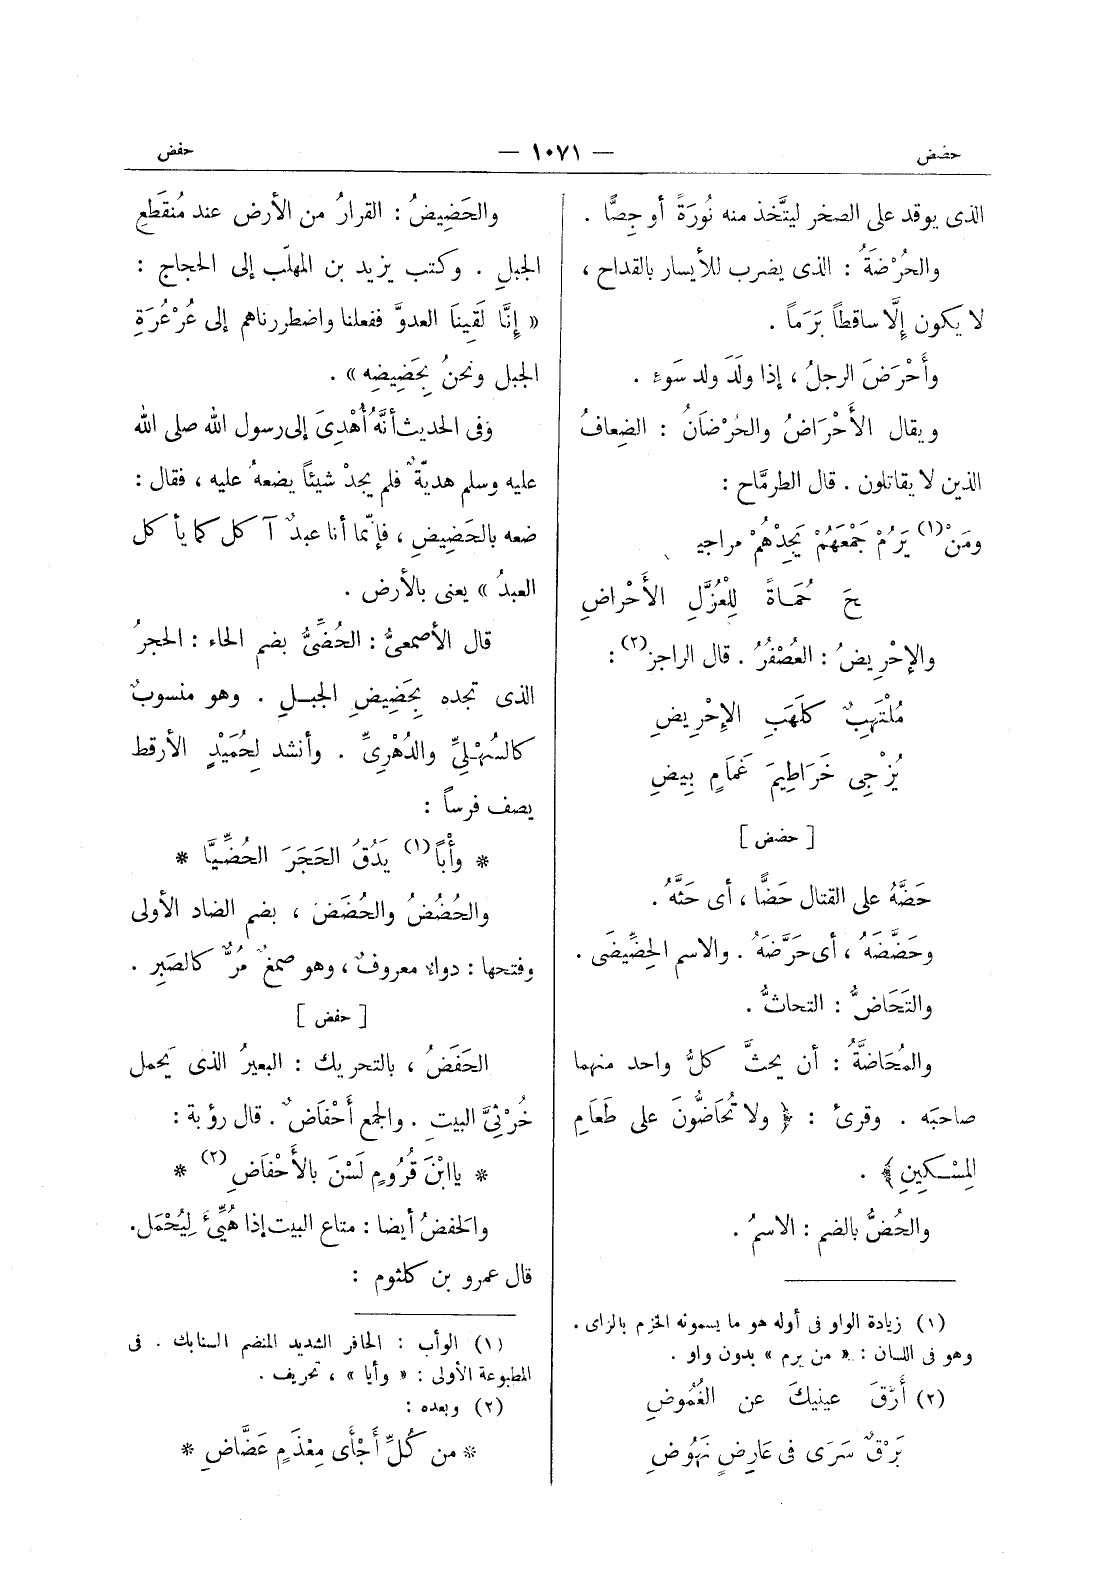 حضض
— ١٠٧١ —
حفض
الذى يوقد على الصخر ليتَّخذ منه نُورَةً أو جِصًّا .
والحُرْضَةُ : الذى يضرب للأيسار بالقداح ،
لا يكون إلَّا ساقطاً بَرَماً .
وأَحْرَضَ الرجلُ ، إذا ولَدَ ولد سَوءٍ .
ويقال الأَحْرَاضُ والحُرْضَانُ : الضِعافُ
الذين لا يقاتلون . قال الطرمَّاح :
ومَنْ (١) يَرُمْ جَمْعَهُمْ يَجِدْهُمْ مراجيـ
حَ حُمَاةً لِلْعُزَّلِ الأَحْراضِ
والإحْرِيضُ : العُصْفُرُ . قال الراجز (٢) :
مُلْتَهِبٌ كلَهَبِ الإحْرِيضِ
يُزْجِى خَرَاطِيمَ غَمَامٍ بِيضِ
[ حضض ]
حَضَّهُ على القتال حَضًّا ، أى حَثَّهُ .
وحَضَّضَهُ ، أى حَرَّضَهُ . والاسم الحِضِّيضَى .
والتَحَاضُّ : التحاثُّ .
والمُحَاضَّةُ : أن يحثَّ كلُّ واحد منهما
صاحبَه . وقرئ : ﴿ ولا تُحَاضُّونَ على طَعَامِ
المِسْكِينِ ﴾ .
والحُضُّ بالضم : الاسمُ .
(١) زيادة الواو فى أوله هو ما يسمونه الخزم بالزاى .
وهو فى اللسان : « من يرم » بدون واو .
(٢) أَرَّقَ عينيكَ عن الغُمُوضِ
بَرْقٌ سَرَى فى عَارِضٍ نَهُوضِ
والحَضِيضُ : القرارُ من الأرض عند مُنقَطِعِ
الجبلِ . وكتب يزيد بن المهلّب إلى الحجاج :
« إنَّا لَقِينَا العدوَّ ففعلنا واضطررناهم إلى عُرْعُرَةِ
الجبل ونحنُ بِحَضِيضِه » .
وفى الحديث أنَّهُ أُهْدِىَ إلى رسول الله صلى الله
عليه وسلم هديّةٌ فلم يجدْ شيئاً يضعهُ عليه ، فقال :
ضعه بالحَضِيضِ ، فإنّما أنا عبدٌ آكل كما يأكل
العبدُ » يعنى بالأرض .
قال الأصمعىُّ : الحُضِّىُّ بضم الحاء : الحجرُ
الذى تجده بِحَضِيضِ الجبلِ . وهو منسوبٌ
كالسُهْلِىِّ والدُهْرِىِّ . وأنشد لِحُمَيْدٍ الأرقط
يصف فرساً :
* وأْباً (١) يَدُقُ الحَجَرَ الحُضِّيَّا *
والحُضُضُ والحُضَضَ ، بضم الضاد الأولى
وفتحها : دواء معروفٌ ، وهو صمغٌ مُرٌّ كالصَبِرِ .
[ حفض ]
الحَفَضُ ، بالتحريك : البعيرُ الذى يَحمل
خُرْثِىَّ البيتِ . والجمع أَحْفَاضٌ . قال رؤبة :
* ياابْنَ قُرُومٍ لَسْنَ بالأَحْفَاضِ (٢) *
والحَفضُ أيضا : متاع البيت إذا هُيِّئَ لِيُحْمَل .
قال عمرو بن كلثوم :
(١) الوأب : الحافر الشديد المنضم السنابك . فى
المطبوعة الأولى : « وأيا » ، تحريف .
(٢) وبعده :
* من كُلِّ أَجْأَى مِعْذَمٍ عَضَّاضِ *